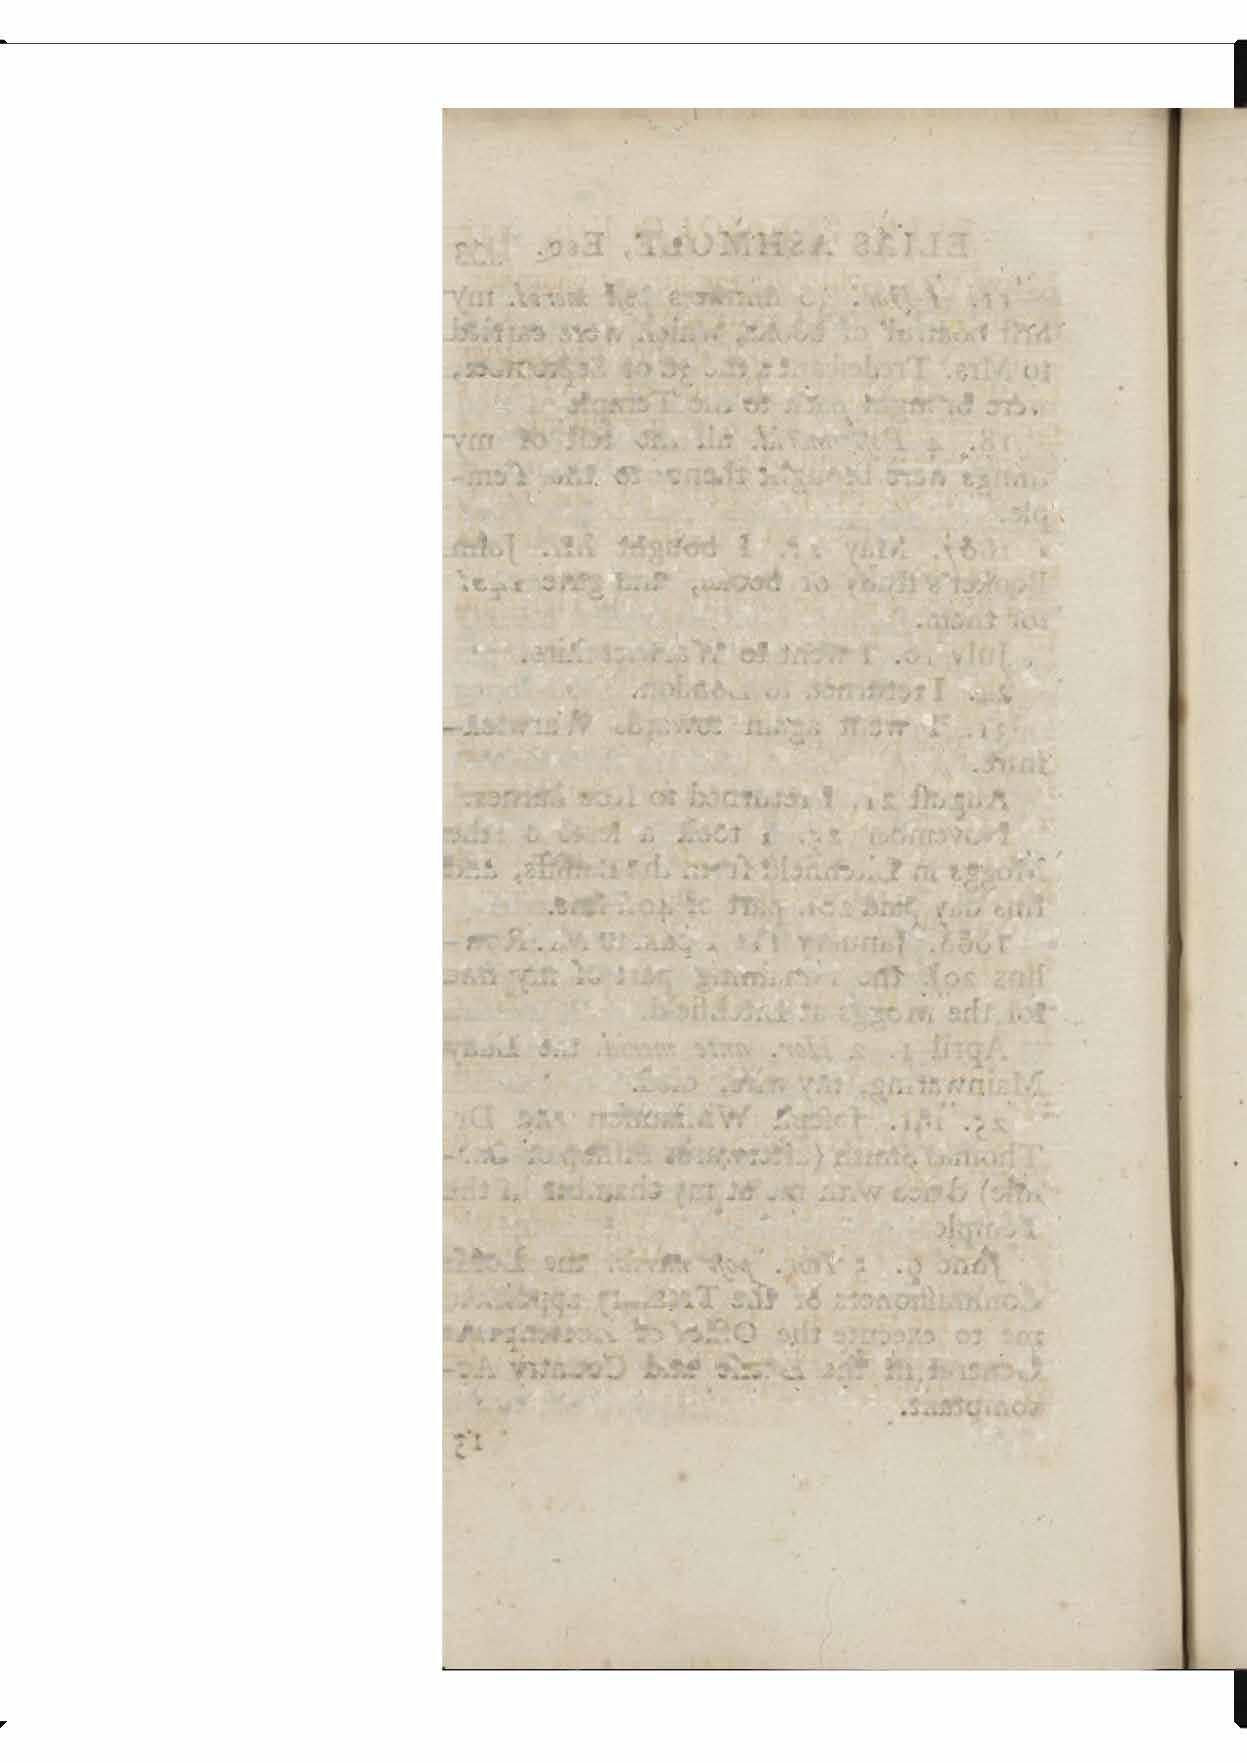 ELIAS ASHMOLE, Esq.
my
first boatful of books, which were carried
to Mrs. Tredescant's the 3d of September,
were brought back to the Temple
18. 4 Post merid. all the rest of my
things were brought thence to the Tem-
ple.
1667. May 21. I bought Mr. John
Booker's study of books, and gave
for them.
July 10. I went to Warwickshire.
24. I returned to London.
31. I went again towards Warwick-
shire.
August 21. I returned to
November 25. I took a lease of the
Moggs in Litchfield from the bailiffs, and
this day paid 20l. part of 40l. fine.
1668. January I paid to Mr. Raw-
lins 20l. the remaining part of my fine
for the Moggs at Litchfield.
April 1. 2 Hor. ante merid. the Lady
Mainwaring, my wife, died.
25. Mr. Joseph Williamson and Dr.
Thomas Smith (afterwards Bishop of Car-
lisle) dined with me at my chamber in the
Temple
June 9. 1 Hor. post merid. the Lords
Commissioners of the Treasury appointed
me to execute the Office of Accomptant
General in the Excise and Country Ac-
comptant.